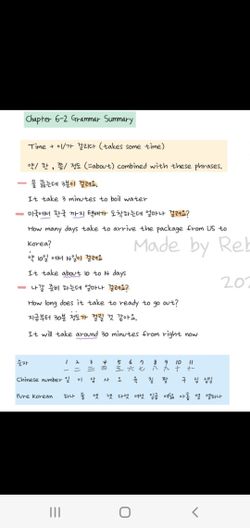 Chapter 6-2 Grammar Summary
Time + 이/가 걸리다 (takes some time)
약/ 한 , 쯤/ 정도 (=about) combined with these phrases.
물 끓는데 3분이 걸려요.
It take 3 minutes to boil water
미국에서 한국 까지 택배가 도착하는데 얼마나 걸려요?
How many days take to arrive the package from US to
Korea?
Made by Reb
약 10일 에서 14일이 걸려요
202
It take about 10 to 14 days
나갈 준비 하는데 얼마나 걸려요?
How long does it take to ready to go out?
지금부터 30분 정도가 걸릴 것 같아요.
It will take around 30 minutes from right now
숫자 1 2 3 4 5 6 7 8 9 10 11
一 二 三 四 五 六 七 八 九 十
Chinese number 일 이 삼 사 오 육 칠 팔 구 십 십일
Pure Korean 하나 둘 셋 넷 다섯 여섯 일곱 여덟 아홉 열 열하나